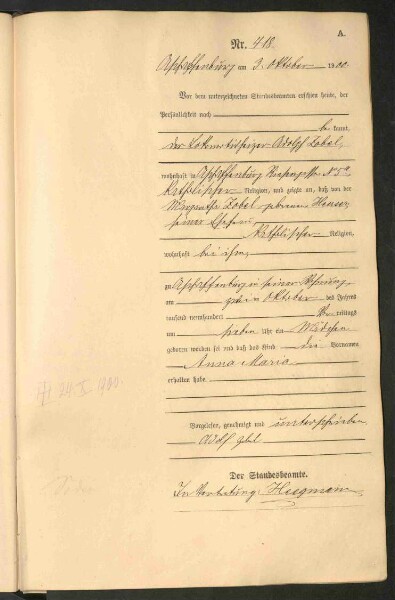 A.
Nr. 418.
Aschaffenburg am 3. Oktober 1900.
Vor dem unterzeichneten Standesbeamten erschien heute, der
Persönlichkeit nach
bekannt,
der Lokomotivheizer Adolf Zobel,
wohnhaft in Aschaffenburg
katholischer Religion, und zeigte an, daß von der
Margaretha Zobel geborene
seiner Ehefrau
katholischer Religion,
wohnhaft bei ihm,
zu Aschaffenburg in seiner Wohnung,
am Oktober des Jahres
tausend neunhundert Vormittags
um sieben Uhr ein Mädchen
geboren worden sei und daß das Kind die Vornamen
Anna Maria
erhalten habe.
Vorgelesen, genehmigt und unterschrieben
Adolf Zobel
Der Standesbeamte.
In Vertretung:
24. X. 1900.